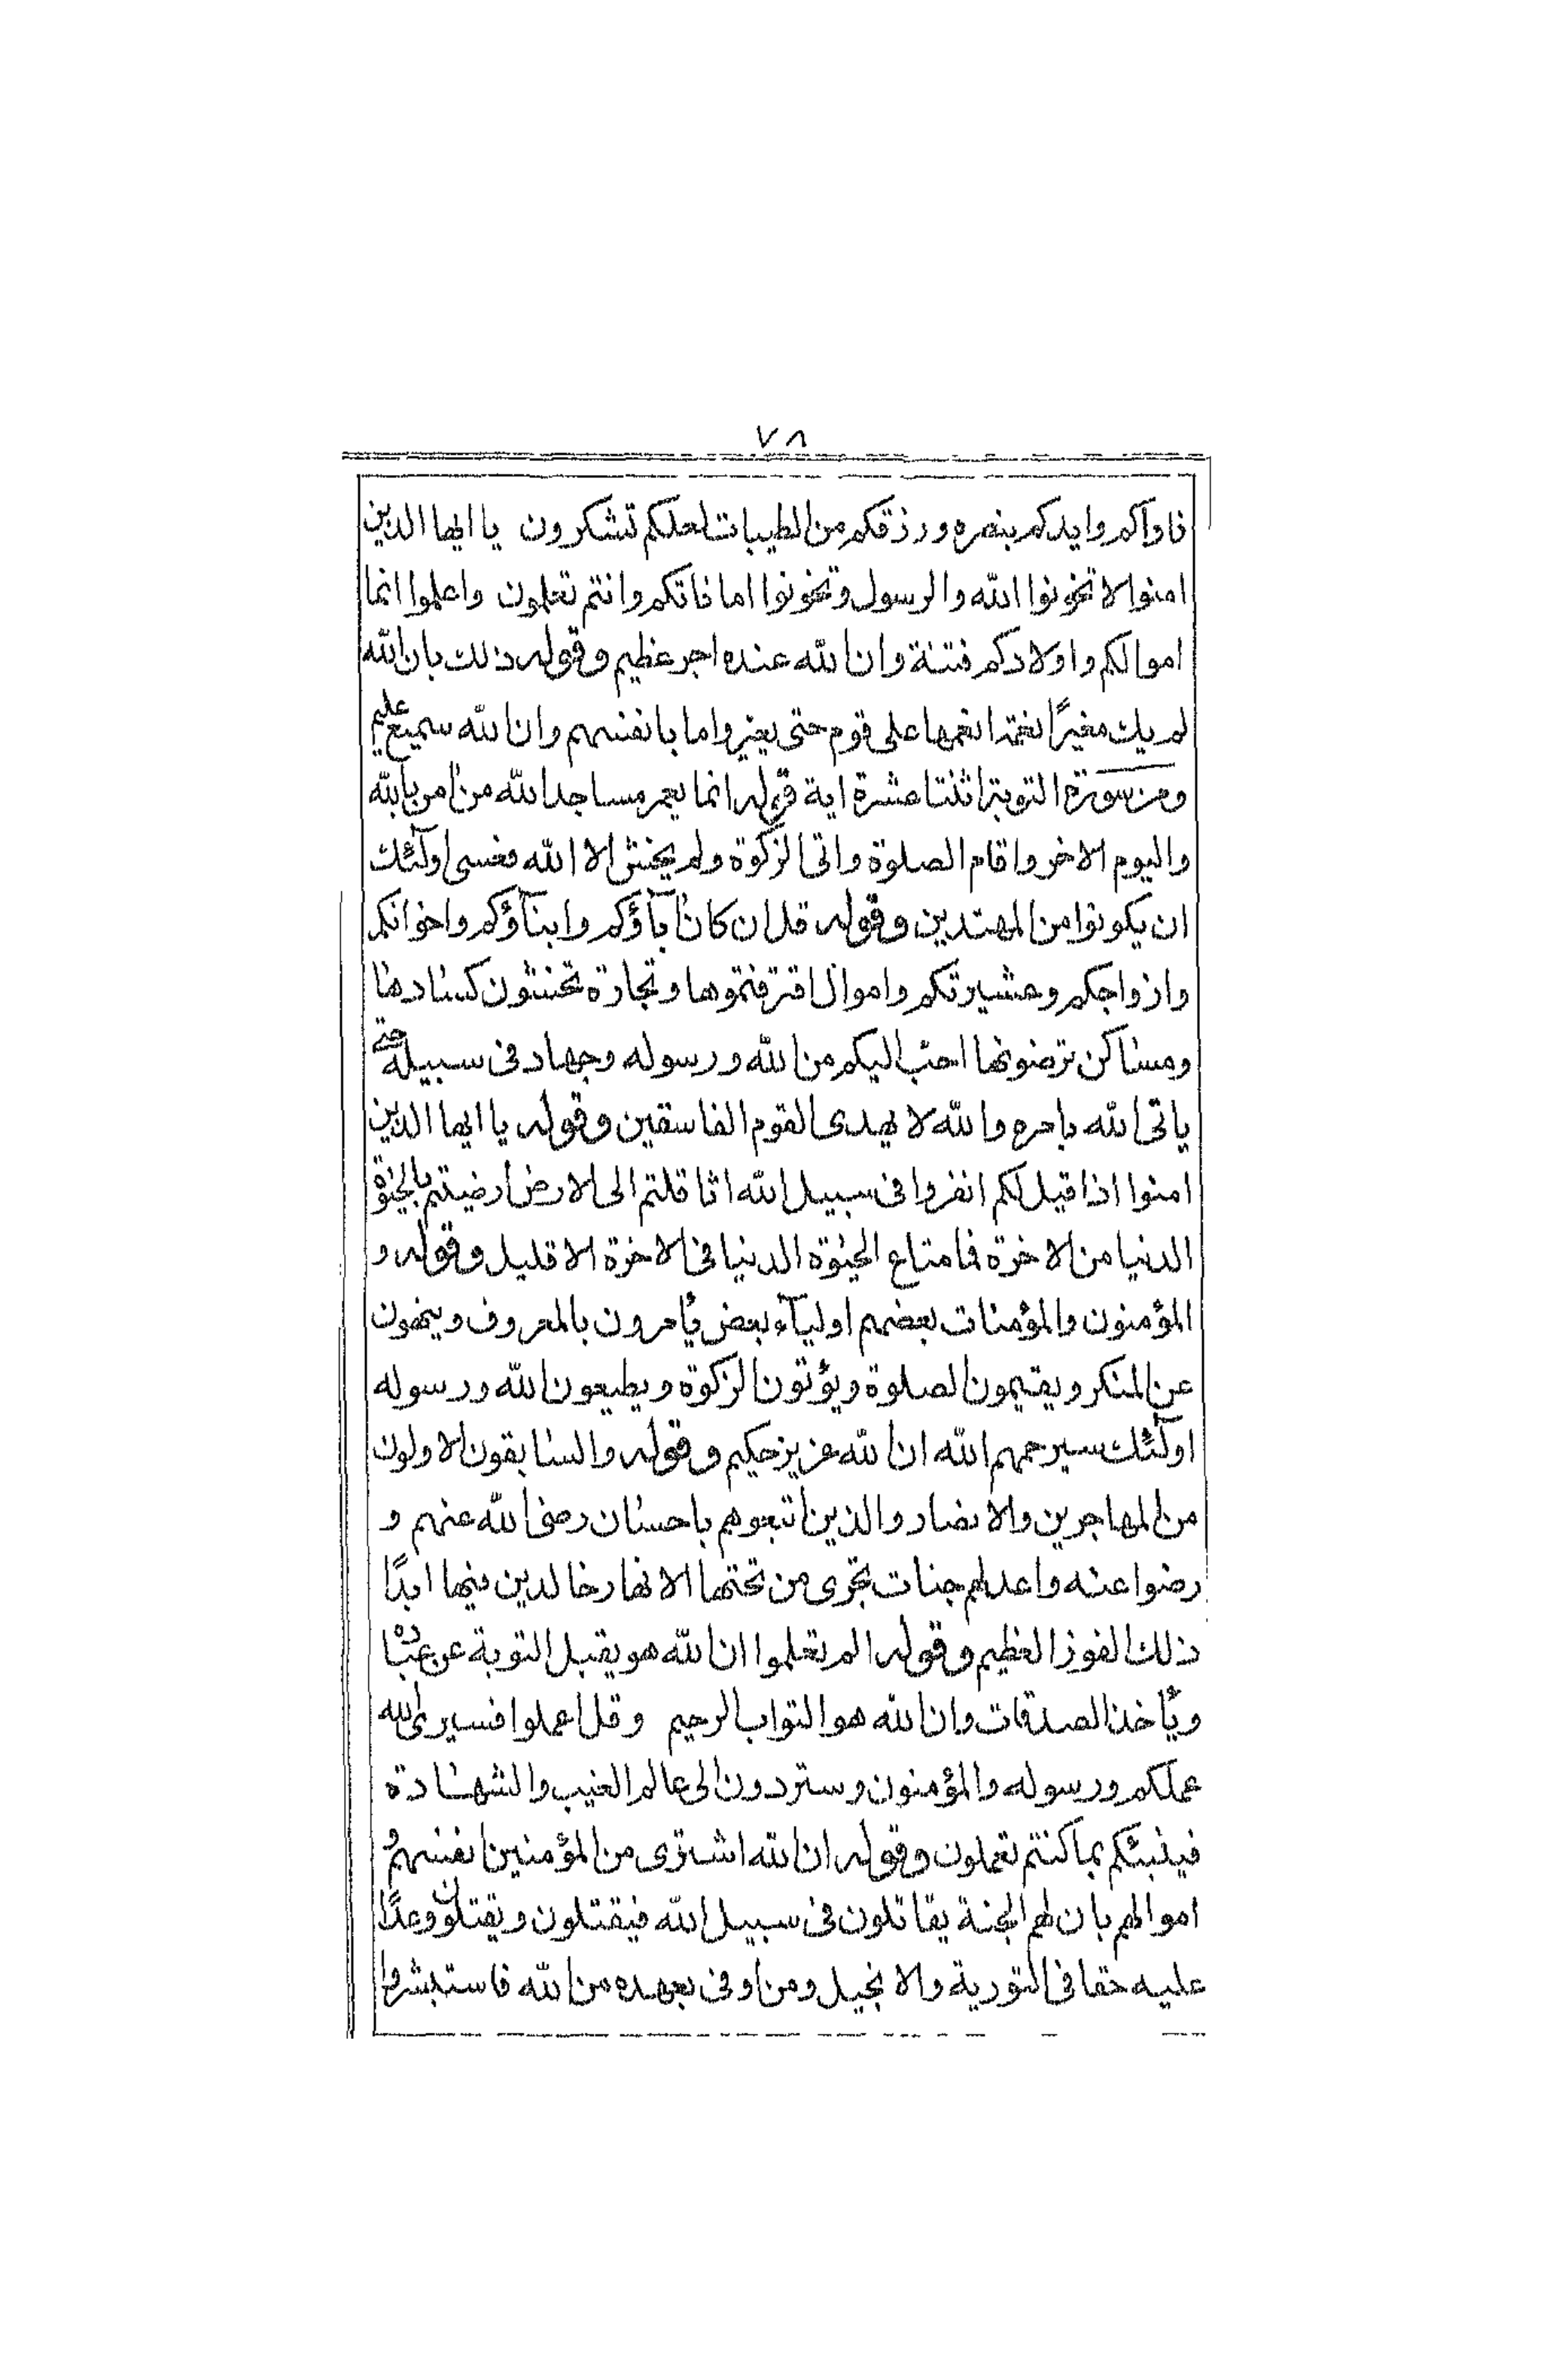 ٧٨
فاواكم وايدكم بنصره ورزقكم من الطيبات لعلكم تشكرون يا ايها الذين
امنوا لا تخونوا الله والرسول وتخونوا اماناتكم وانتم تعلمون واعلموا انما
اموالكم واولادكم فتنة وان الله عنده اجر عظيم وقوله ذلك بان الله
لم يك مغيرًا نعمة انعمها على قوم حتى يغيروا ما بانفسهم وان الله سميع عليم
ومن سورة التوبة اثنتا عشرة اية قوله انما يعمر مساجد الله من امن بالله
واليوم الاخر واقام الصلوة واتى الزكوة ولم يخش الا الله فعسى اولئك
ان يكونوا من المهتدين وقوله قل ان كان اباؤكم وابناؤكم واخوانكم
وازواجكم وعشيرتكم واموال اقترفتموها وتجارة تخشون كسادها
ومساكن ترضونها احب اليكم من الله ورسوله وجهاد فى سبيله حتى
ياتى الله بامره والله لا يهدى القوم الفاسقين وقوله يا ايها الذين
امنوا اذا قيل لكم انفروا فى سبيل الله اثاقلتم الى الارض ارضيتم بالحيوة
الدنيا من الاخرة فما متاع الحيوة الدنيا فى الاخرة الا قليل وقوله و
المؤمنون والمؤمنات بعضهم اولياء بعض يأمرون بالمعروف وينهون
عن المنكر ويقيمون الصلوة ويؤتون الزكوة ويطيعون الله ورسوله
اولئك سيرحمهم الله ان الله عزيز حكيم وقوله والسابقون الاولون
من المهاجرين والانصار والذين اتبعوهم باحسان رضى الله عنهم و
رضوا عنه واعد لهم جنات تجرى من تحتها الانهار خالدين فيها ابدًا
ذلك الفوز العظيم وقوله الم تعلموا ان الله هو يقبل التوبة عن عباده
ويأخذ الصدقات وان الله هو التواب الرحيم وقل اعملوا فسيرى الله
عملكم ورسوله والمؤمنون وستردون الى عالم الغيب والشهادة
فينبئكم بما كنتم تعملون وقوله ان الله اشترى من المؤمنين انفسهم و
اموالهم بان لهم الجنة يقاتلون فى سبيل الله فيقتلون ويقتلون وعدًا
عليه حقا فى التورية والانجيل ومن اوفى بعهده من الله فاستبشروا